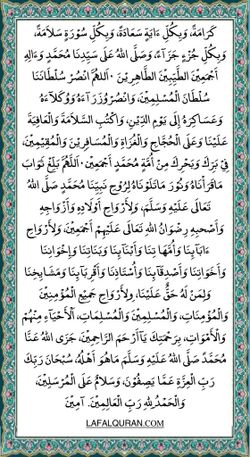 كَرَامَةً، وَبِكُلِّ ءَايَةٍ سَعَادَةً، وَبِكُلِّ سُورَةٍ سَلَامَةً،
وَبِكُلِّ جُزْءٍ جَزَآءً، وَصَلَّى اللهُ عَلَى سَيِّدِنَا مُحَمَّدٍ وَءَالِهِ
أَجْمَعِينَ الطَّيِّبِينَ الطَّاهِرِينَ ۰ اَللّٰهُمَّ انْصُرْ سُلْطَانَنَا
سُلْطَانَ الْمُسْلِمِينَ، وَانْصُرْ وُزَرَآءَهُ وَوُكَلَآءَهُ
وَعَسَاكِرَهُ إِلَى يَوْمِ الدِّينِ، وَاكْتُبِ السَّلَامَةَ وَالْعَافِيَةَ
عَلَيْنَا وَعَلَى الْحُجَّاجِ وَالْغُزَاةِ وَالْمُسَافِرِينَ وَالْمُقِيمِينَ،
فِي بَرِّكَ وَبَحْرِكَ مِنْ أُمَّةِ مُحَمَّدٍ أَجْمَعِينَ ۰ اَللّٰهُمَّ بَلِّغْ ثَوَابَ
مَاقَرَأْنَاهُ وَنُورَ مَاتَلَوْنَاهُ لِرُوحِ نَبِيِّنَا مُحَمَّدٍ صَلَّى اللهُ
تَعَالَى عَلَيْهِ وَسَلَّمَ، وَلِأَرْوَاحِ أَوْلَادِهِ وَأَزْوَاجِهِ
وَأَصْحَبِهِ رِضْوَانُ اللهِ تَعَالَى عَلَيْهِمْ أَجْمَعِينَ، وَلِأَرْوَاحِ
ءَابَآئِنَا وَأُمَّهَا تِنَا وَأَبْنَآئِنَا وَبَنَاتِنَا وَإِخْوَانِنَا
وَأَخَوَاتِنَا وَأَصْدِقَآئِنَا وَأُسْتَاذِنَا وَأَقْرِبَآئِنَا وَمَشَايِخِنَا
وَلِمَنْ لَهُ حَقٌّ عَلَيْنَا، وَلِأَرْوَاحِ جَمِيعِ الْمُؤْمِنِينَ
وَالْمُؤْمِنَاتِ، وَالْمُسْلِمِينَ وَالْمُسْلِمَاتِ، اَلْأَحْيَآءِ مِنْهُمْ
وَالْأَمْوَاتِ، بِرَحْمَتِكَ يَآأَرْحَمَ الرَّاحِمِينَ، جَزَى اللهُ عَنَّا
مُحَمَّدً صَلَّى اللهُ عَلَيْهِ وَسَلَّمَ مَاهُوَ أَهْلُهُ، سُبْحَانَ رَبِّكَ
رَبِّ الْعِزَّةِ عَمَّا يَصِفُونَ، وَسَلَامٌ عَلَى الْمُرْسَلِينَ،
وَالْحَمْدُ لِلّٰهِ رَبِّ الْعَالَمِينَ. آمِينَ
LAFALQURAN.COM